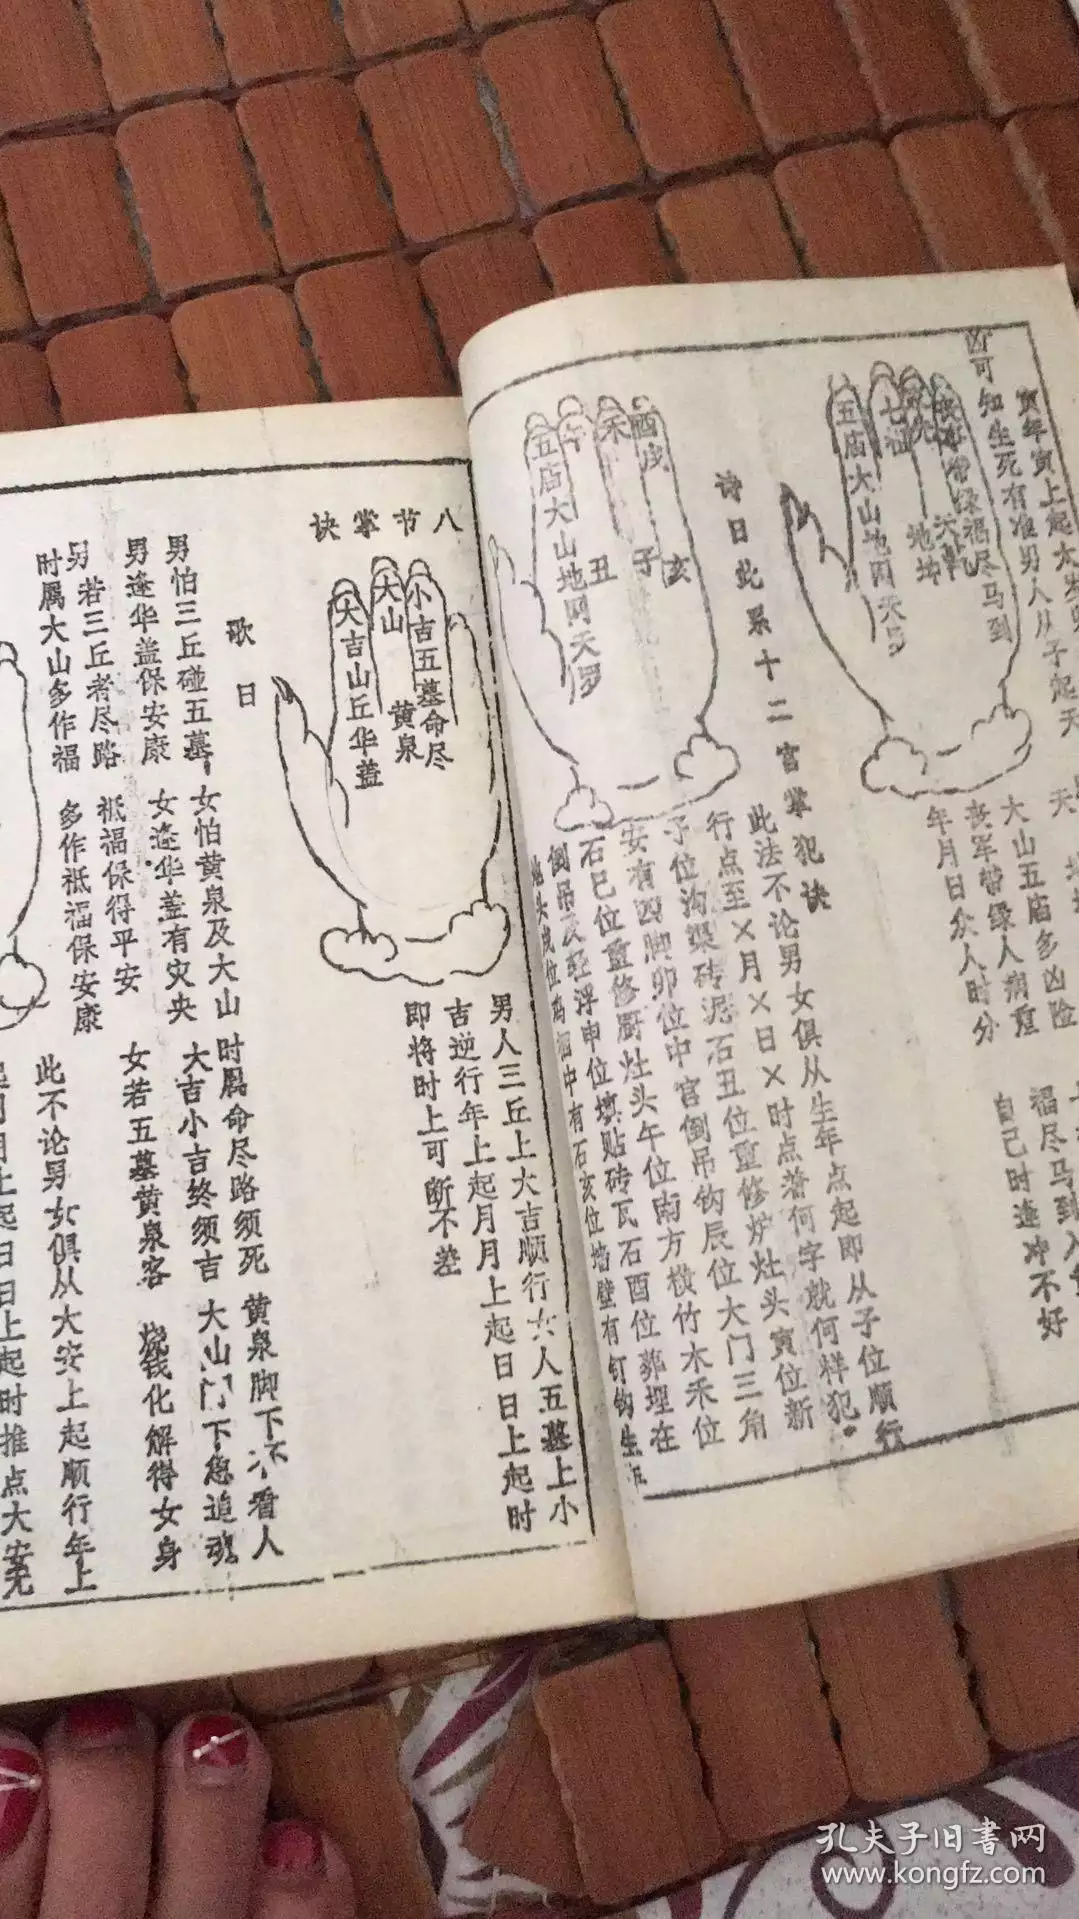 寅年寅上起太岁
凶可知生死有准男人从子起天
五庙大山地网天罗
七
常绿福尽马到
地坤
天
大山五庙多凶险
丧军带绿人病重
年月日众人时分
福尽马到入
自己时逢冲不好
酉戌
未
午
五庙大山地网天罗
亥
子
丑
诗曰此系十二宫掌犯诀
此法不论男女俱从生年点起即从子位顺行
行点至×月×日×时点着何字就何样犯。
子位沟渠砖泥石丑位重修炉灶头寅位新
安有四脚卯位中宫倒吊钩辰位大门三角
石巳位重修厨灶头午位南方横竹木未位
倒吊及轻浮申位填贴砖瓦石酉位葬埋在
地头戌位坞洄中有石亥位墙壁有钉钩生
八节掌诀
小吉五墓命尽
大山
黄泉
大吉山丘华盖
男人三丘上大吉顺行女人五墓上小
吉逆行年上起月月上起日日上起时
即将时上可断不差
歌曰
男怕三丘碰五墓 女怕黄泉及大山 时属命尽路须死 黄泉脚下不看人
男逢华盖保安康 女逢华盖有灾央 大吉小吉终须吉 大山门下急追魂
另若三丘者尽路 祗福保得平安 女若五墓黄泉客 烧钱化解得女身
时属大山多作福 多作祗福保安康
此不论男女俱从大安上起顺行年上
起月月上起日日上起时推点大安无
孔夫子旧书网
www.kongfz.com